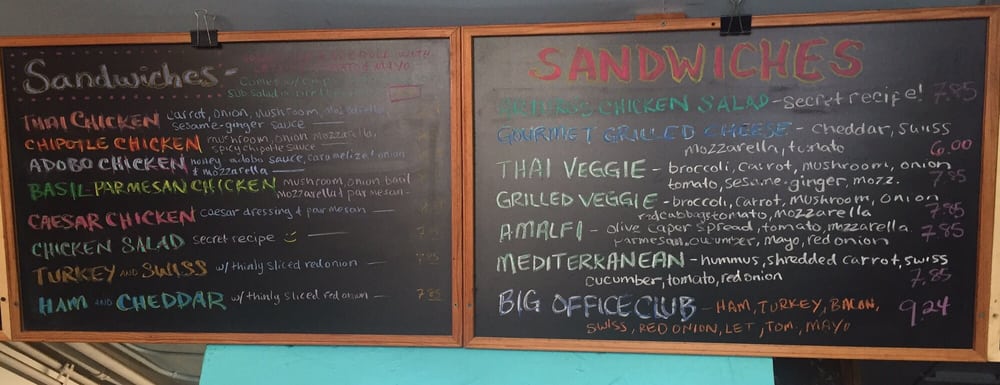 Sandwiches-
& MAYO
Comes w/ chips
THAI CHICKEN carrot, onion, mushroom,
sesame-ginger sauce
CHIPOTLE CHICKEN mushroom onion mozzarella,
spicy chipotle sauce
ADOBO CHICKEN honey adobo sauce, caramelized onion
& mozzarella
BASIL-PARMESAN CHICKEN mushroom, onion basil
mozzarella & parmesan-
CAESAR CHICKEN caesar dressing & parmesan
CHICKEN SALAD secret recipe 7.85
TURKEY AND SWISS w/ thinly sliced red onion 7.85
HAM AND CHEDDAR w/ thinly sliced red onion 7.85
SANDWICHES
CHICKEN SALAD-secret recipe! 7.85
GOURMET GRILLED CHEESE- cheddar, swiss
mozzarella, tomato 6.00
THAI VEGGIE- broccoli, carrot, mushroom, onion
tomato, sesame-ginger, mozz. 7.85
GRILLED VEGGIE-broccoli, carrot, mushroom, onion
red cabbage tomato, mozzarella 7.85
AMALFI- olive caper spread, tomato, mozzarella 7.85
parmesan, cucumber, mayo, red onion
MEDITERRANEAN-hummus, shredded carrot, swiss
cucumber, tomato, red onion 7.85
BIG OFFICE CLUB - HAM, TURKEY, BACON, 9.24
SWISS, RED ONION, LET, TOM, MAYO